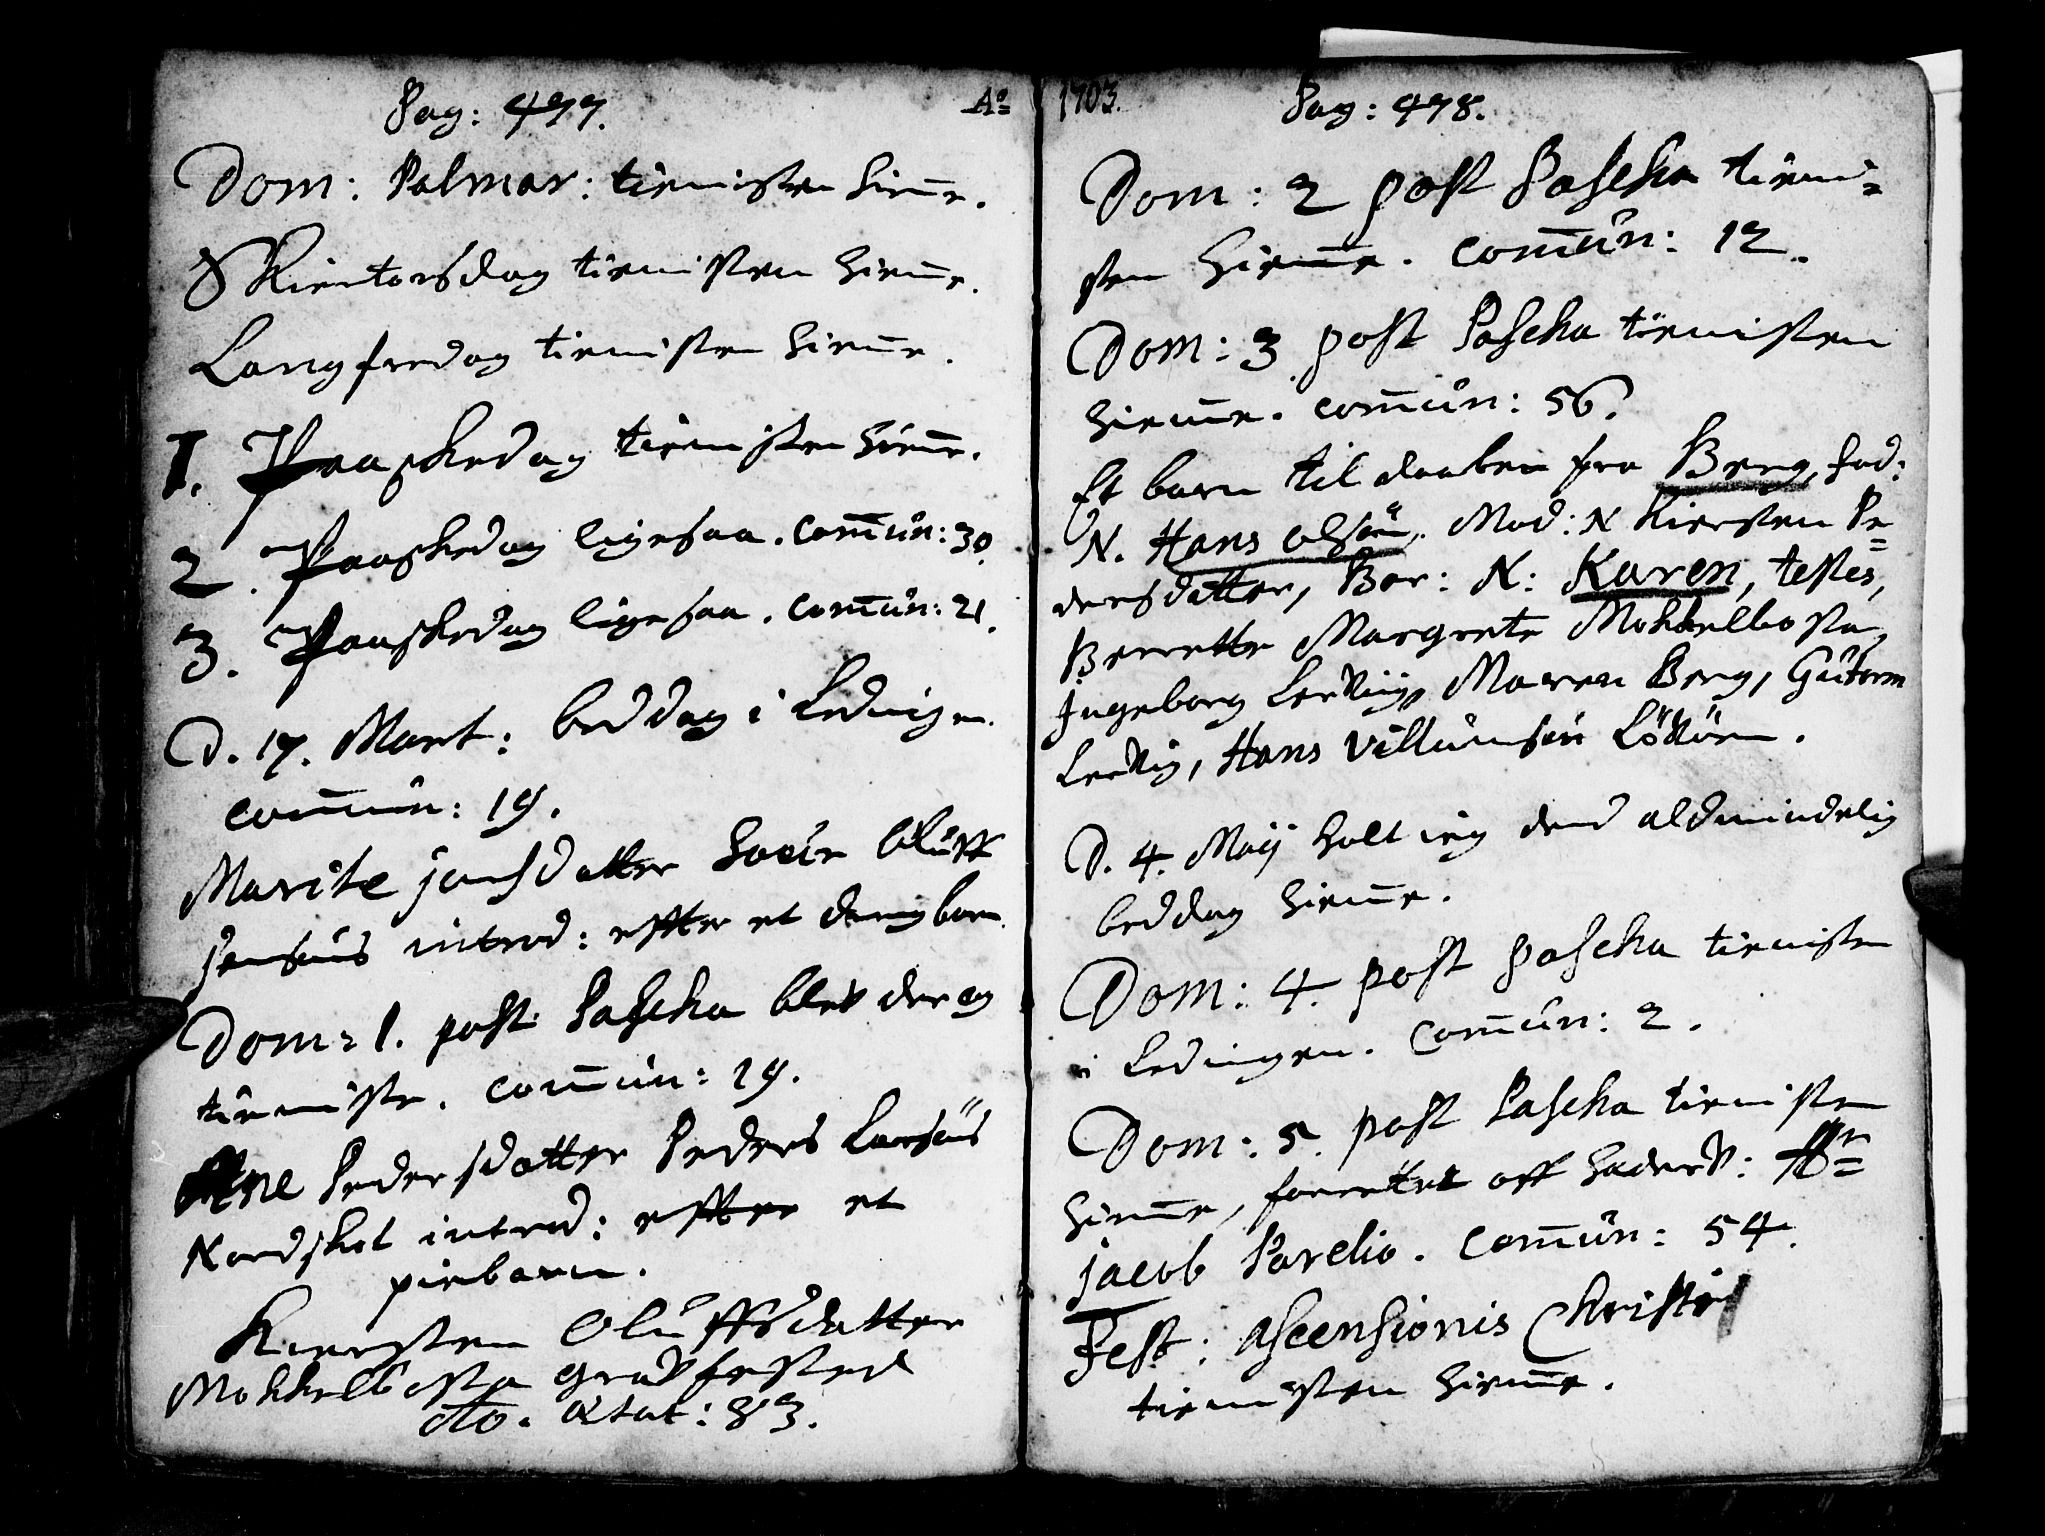 Pag: 477. Ao
Dom: Palmar: tienisten hieme.
Skiertorsdag tienisten hieme.
Langfredag tienisten hieme.
1. Paaskedag tienisten hieme.
2. Paaskedag ligesaa. Comun: 30.
3. Paaskedag ligesaa. Comun: 21.
D. 17. Mart: beddag i Lødingen.
comun: 19.
Marite jonsdatter Oluff
Jensøns introd: effter et barn.
Dom: 1. post Pascha blev der og
tieniste. comun: 19.
Ane Pedersdatter Peders Larsøns
Nordskot introd: effter et
piebarn.
Kiersten Oluffsdatter
Mohkelbosta gravfested
Ao. ætat: 83.
1703. Pag: 478.
Dom: 2 post Pascha tieni=
sten hieme. comun: 12.
Dom: 3 post Pascha tienisten
hieme. comun: 56.
Et barn til daaben fra Berg, fad:
N. Hans olsøn, Mod: N Kiersten Pe=
dersdatter, Bar: N: Karen, testes,
Berette Margrete Mohkelbosta,
Ingeborg Leevig, Maren Berg, Gutorm
Leevig, Hans Villumsøn
D. 4. Maij holt ieg dend aldmindelig
beddag hieme.
Dom: 4. post pascha tienisten
i Lødingen. Comun: 2.
Dom: 5. post Pascha tienisten
hieme, forrettet off
jacob Parelio. Comun: 54.
Fest: ascensionis Christi
tienisten hieme.